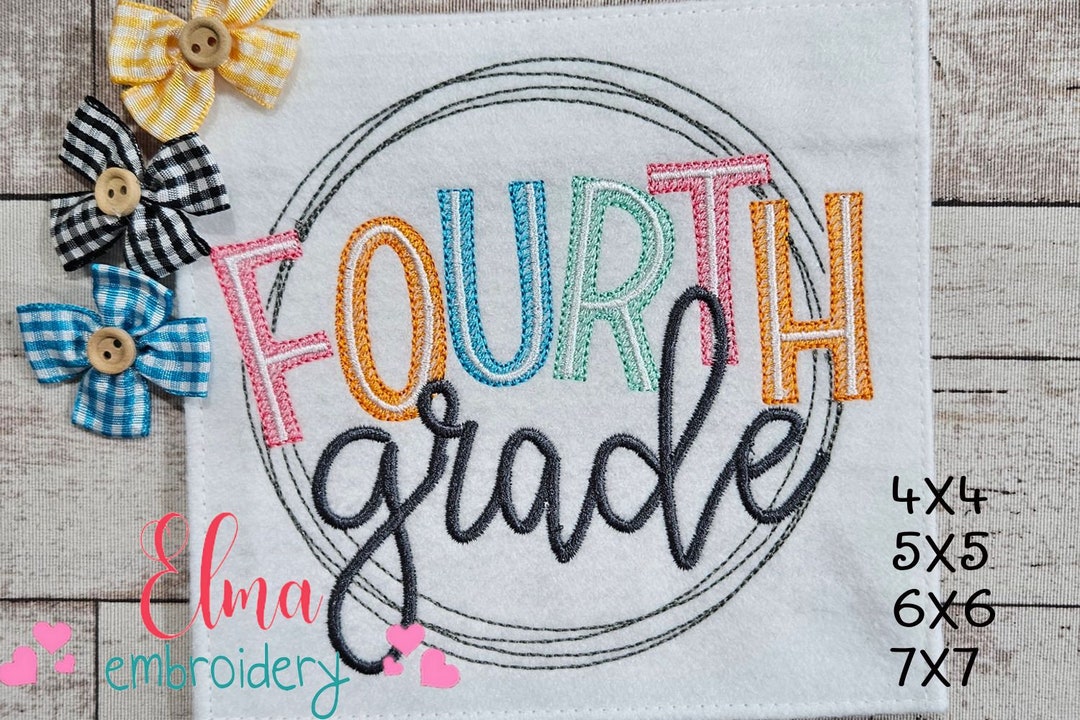 FOURTH
grade
Elma
embroidery
4X4
5X5
6X6
7X7